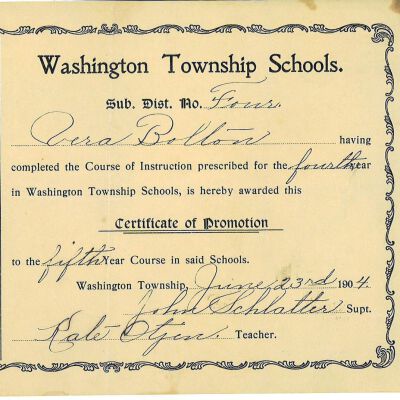 Washington Township Schools.
Sub. Dist. No. Four.
Vera Bolton having
completed the Course of Instruction prescribed for the fourth year
in Washington Township Schools, is hereby awarded this
Certificate of Promotion
to the fifth Year Course in said Schools.
Washington Township, June 23rd 1904.
John Schlatter Supt.
Kate Otjen Teacher.